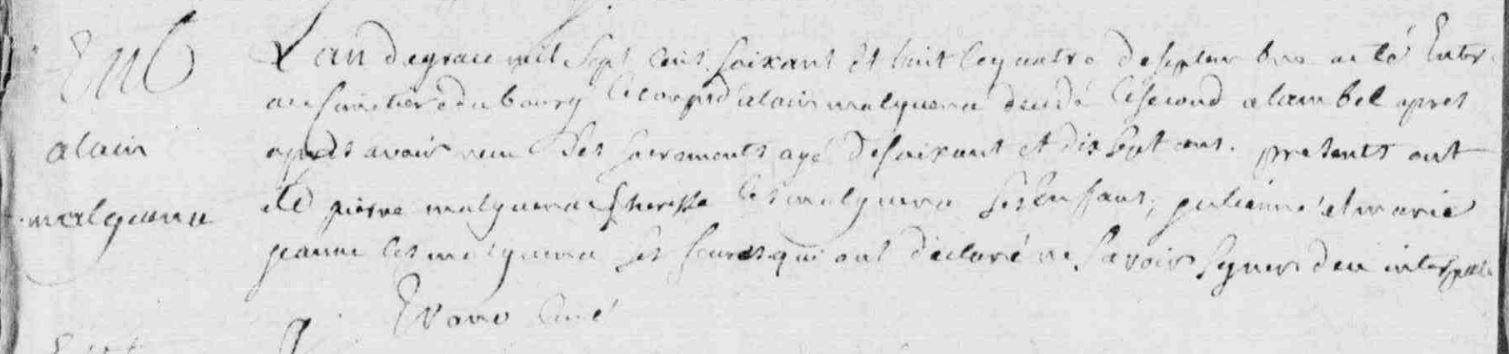 Enb
alain
malguenu
L'an de grace mil sept cent soixant et huit le quatre de septembre a eté Enter
au Cimetiere du bourg le corps d'alain malguenu decedé le second a lambel apres
apres avoir recu Les sacrements agé de soixant et dix sept ans. presents ont
eté pierre malguenu Therese les malguenu ses Enfants, julienne et marie
jeanne les malguenu ses soeurs qui ont declaré ne savoir signer de ce interpellé
Evano curé